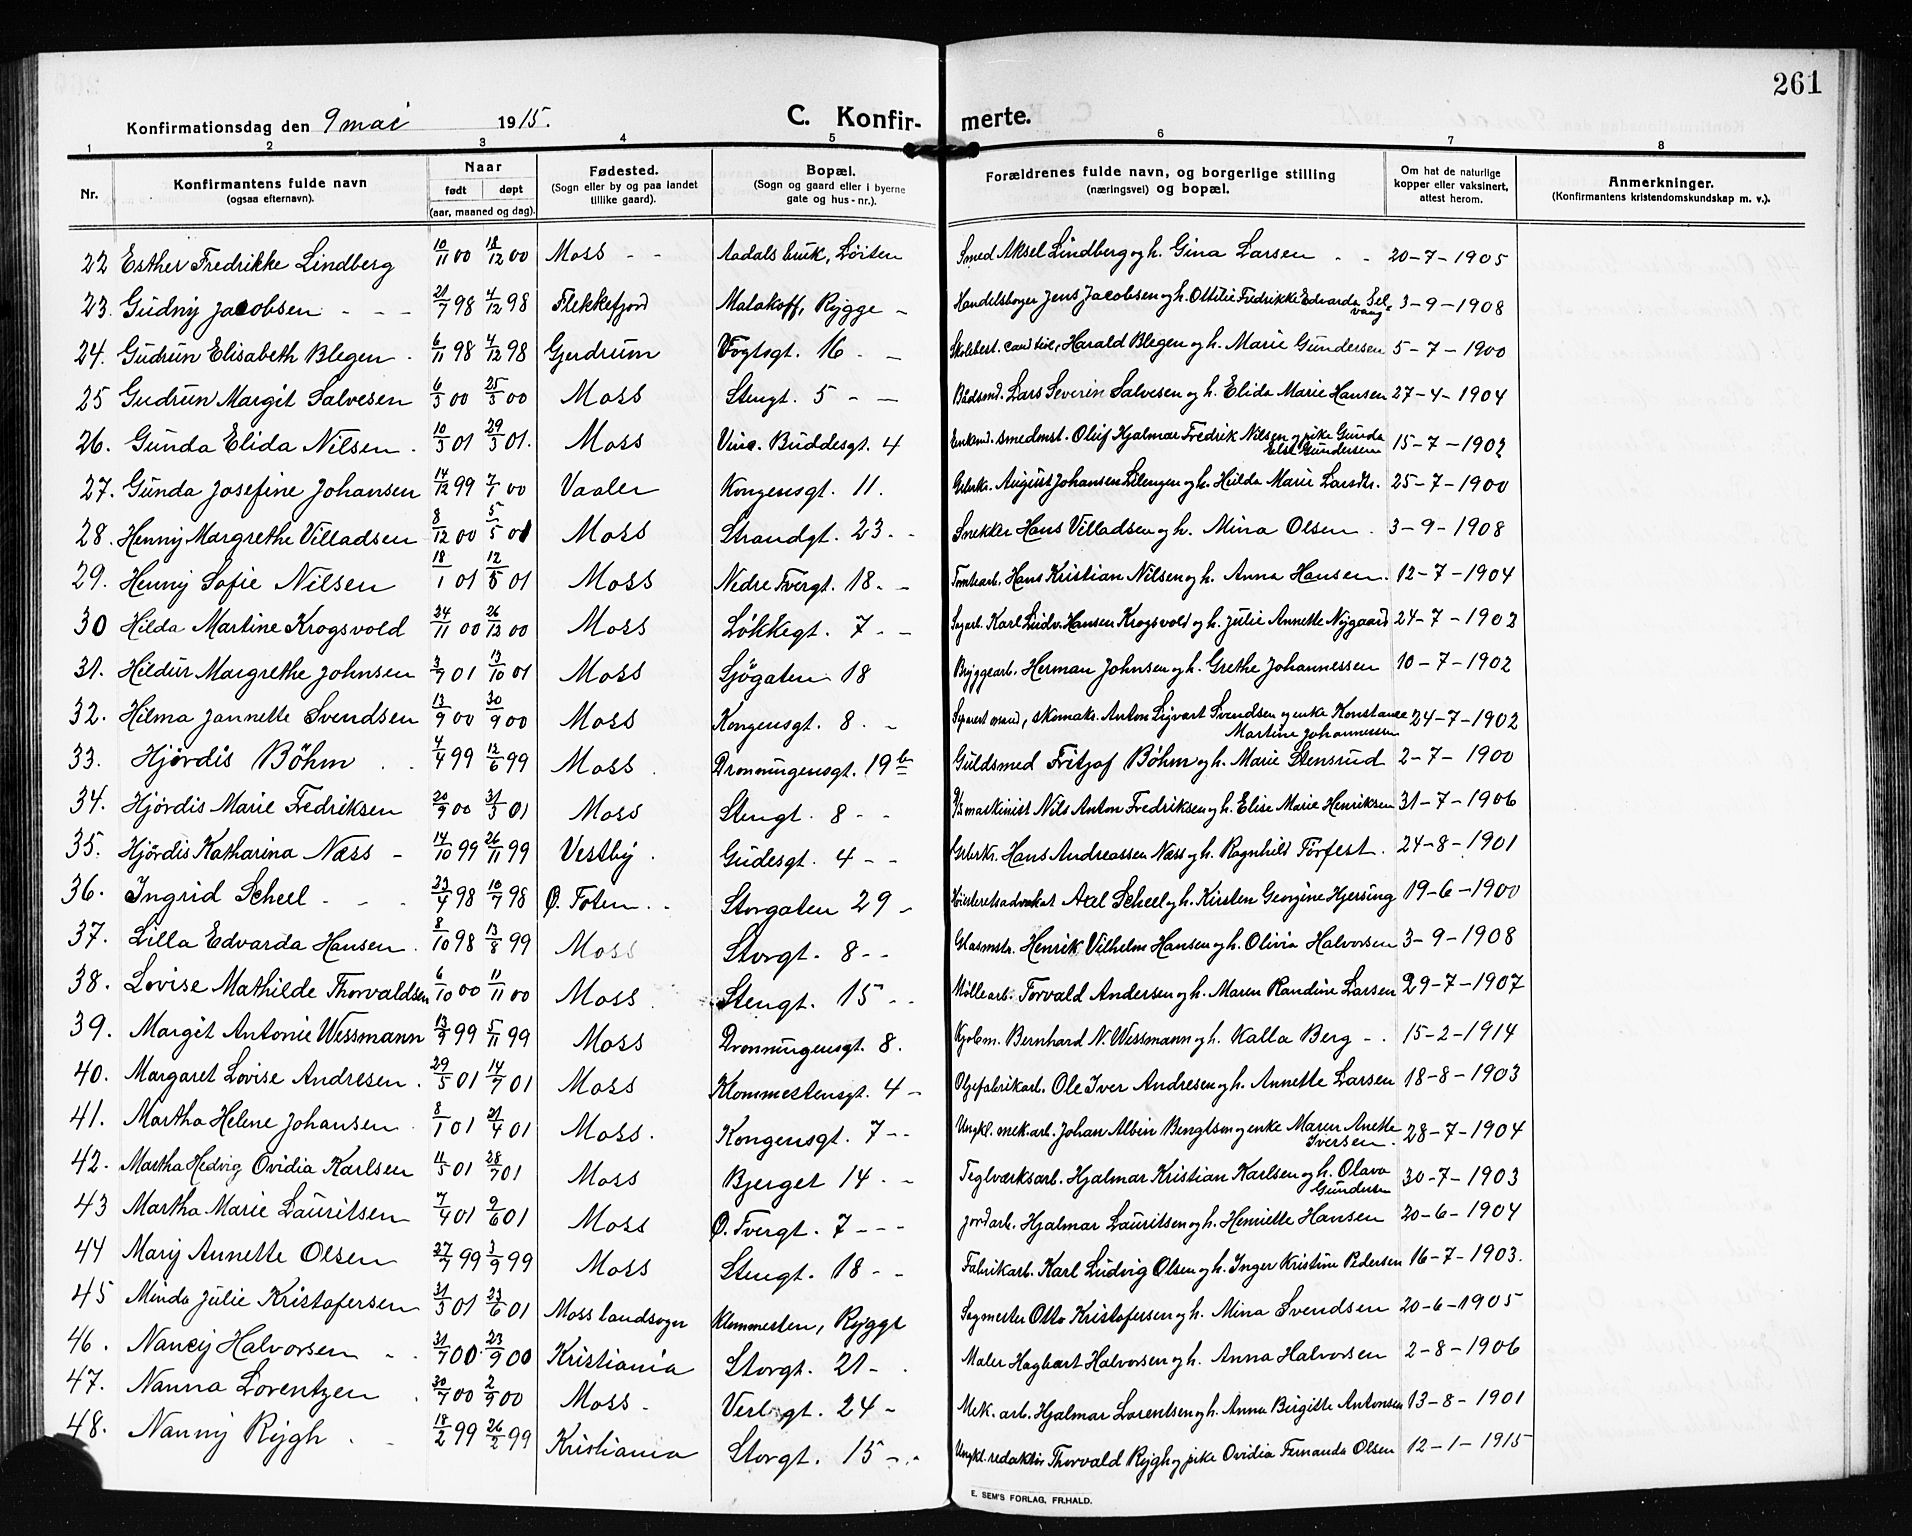 261
Konfirmationsdag den 9 mai 1915. C. Konfir- merte.
1 2 3 4 5 6 7 8
Nr. Konfirmantens fulde navn (ogsaa efternavn). Naar født døpt (aar, maaned og dag). Fødested. (Sogn eller by og paa landet tillike gaard). Bopæl. (Sogn og gaard eller i byerne gate og hus-nr.). Forældrenes fulde navn, og borgerlige stilling (næringsvei) og bopæl. Om hat de naturlige kopper eller vaksinert, attest herom. Anmerkninger. (Konfirmantens kristendomskundskap m. v.).
22 Esther Fredrikke Lindberg 10/11 00 18/12 00 Moss - - Aadals bruk, Løiten Smed Aksel Lindberg og h. Gina Larsen - - 20-7-1905
23. Gudny Jacobsen - - - 21/7 98 4/12 98 Flekkefjord Malakoff, Rygge - Handelsborger Jens Jacobsen og h. Ottilie Fredrikke Edvarda Selvaag 3-9-1908
24. Gudrun Elisabeth Blegen . 6/11 98 4/12 98 Gjerdrum Vogtsgt. 16 - - Skolebest. cand. Harald Blegen og h. Marie Gundersen 5-7-1900
25 Gudrun Margit Salvesen 6/3 00 25/5 00 Moss Stengt. 5 - - Bådsmd. Lars Severin Salvesen og h. Elida Marie Hansen 27-4-1904
26. Gunda Elida Nilsen . 10/3 01 29/5 01. Moss Vinc. Buddesgt. 4 Enkmd. smedmst. Oluf Hjalmar Fredrik Nilsen og pike Gunda Elise Gundersen 15-7-1902
27. Gunda Josefine Johansen 14/12 99 7/1 00 Vaaler Kongensgt. 11. August Johansen Lilengen og h. Hilda Marie Larsdtr. 25-7-1900
28. Henny Margrethe Villadsen 8/12 00 5/5 01 Moss Strandgt. 23. - Snekker Hans Villadsen og h. Mina Olsen . 3-9-1908
29. Henny Sofie Nilsen 18/1 01 12/5 01 Moss Nedre Tvergt. 18 - - Tomtearb. Hans Kristian Nilsen og h. Anna Hansen. 12-7-1904
30 Hilda Martine Krogsvold 24/11 00 26/12 00 Moss Løkkegt. 7 - - Sagarb. Karl Ludv. Hansen Krogsvold og h. Julie Annette Nygaard 24-7-1902
31. Hildur Margrethe Johnsen 3/7 01 13/10 01 Moss Sjøgaten 18 Bryggearb. Herman Johnsen og h. Grethe Johannessen 10-7-1902
32. Hilma Jannette Svendsen 13/9 00 30/9 00 Moss Kongensgt. 8. - Separert mand, skomak. Anton Sigvart Svendsen og enke Konstance Martine Johannessen 24-7-1902
33. Hjørdis Bøhm . . 4/4 99 12/6 99 Moss . Dronningensgt. 19 b Guldsmed Fritjof Bøhm og h. Marie Stensrud 2-7-1900
34. Hjørdis Marie Fredriksen 20/9 00 31/3 01 Moss Stengt. 8 - - D/S maskinist Nils Anton Fredriksen og h. Elise Marie Henriksen 31-7-1906
35. Hjørdis Katharina Næss - 14/10 99 26/11 99 Vestby . Gudesgt. 4 - - Hans Andreassen Næss og h. Ragnhild Torfest . 24-8-1901
36. Ingrid Scheel - - - 23/4 98 10/7 98 Ø. Toten . - Storgaten 29 - Høiesteretsadvokat Axel Scheel og h. Kirsten Georgine Hjersing 19-6-1900
37. Lilla Edvarda Hansen . 8/10 98 13/8 99 Moss Storgt. 8 - - Glasmstr. Henrik Vilhelm Hansen og h. Olivia Halvorsen 3-9-1908
38. Lovise Mathilde Thorvaldsen 6/10 00 11/11 00 Moss . Stengt. 15 - - Møllearb. Torvald Andersen og h. Maren Randine Larsen 29-7-1907
39. Margit Antonie Wessmann 13/9 99 5/11 99 Moss Dronningensgt. 8. Kjøbm. Bernhard N. Wessmann og h. Kalla Berg - . 15-2-1914
40. Margaret Lovise Andresen . 29/5 01 14/7 01 Moss Klommestensgt. 4 - Oljefabrikarb. Ole Iver Andresen og h. Annette Larsen 18-8-1903
41. Martha Helene Johansen . 8/1 01 21/4 01 Moss. Kongensgt. 7 - - Ungkl. mek. arb. Johan Albin Bengtsen og enke Maren Anette Iversen . 28-7-1904
42. Martha Hedvig Ovidia Karlsen 11/5 01 28/7 01 Moss Bjerget 14 . - Teglværksarb. Hjalmar Kristian Karlsen og h. Olava Gundersen 30-7-1903
43 Martha Marie Lauritsen 7/4 01 9/6 01 Moss Ø. Tvergt. 7 - - - Jordarb. Hjalmar Lauritsen og h. Henriette Hansen 20-6-1904
44 Mary Annette Olsen 27/7 99 3/9 99 Moss Stengt. 18 - - Fabrikarb. Karl Ludvig Olsen og h. Inger Kristine Pedersen 16-7-1903.
45 Minda Julie Kristofersen 31/3 01 23/6 01 Moss landsogn Klommesten, Rygge Sagmester Otto Kristofersen og h. Mina Svendsen 20-6-1905
46. Nancy Halvorsen - . 31/7 00. 23/9 00 Kristiania Storgt. 21 - . Maler Hagbart Halvorsen og h. Anna Halvorsen 2-8-1906
47. Nanna Lorentzen . 30/7 00 2/9 00 Moss - Verlegt. 24 - Mek. arb. Hjalmar Lorentsen og h. Anna Birgitte Antonsen 13-8-1901
48. Nanny Rygh . - 18/2 99 26/2 99 Kristiania Storgt. 15 - - . Ungkl. redaktør Thorvald Rygh og pike Ovidia Fernanda Olsen 12-1-1915
E. SEM'S FORLAG, FR.HALD.